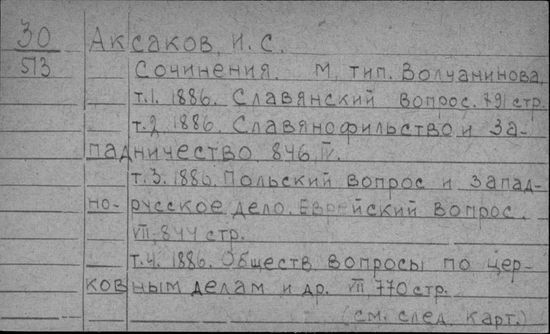 30 Аксаков, И. С.
513 Сочинения. М, тип. Волчанинова,
т.1. 1886. Славянский вопрос. 791 стр.
т.2. 1886. Славянофильство и За-
падничество 846. IV.
т.3. 1886. Польский вопрос и Запад-
но-русское дело. Еврейский вопрос.
VII-844 стр.
т.4. 1886. Обществ вопросы по цер-
ковным делам и др. VIII 770 стр.
(см. след карт.)